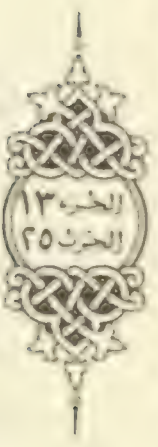 الجزء ١٣
الحزب ٢٥